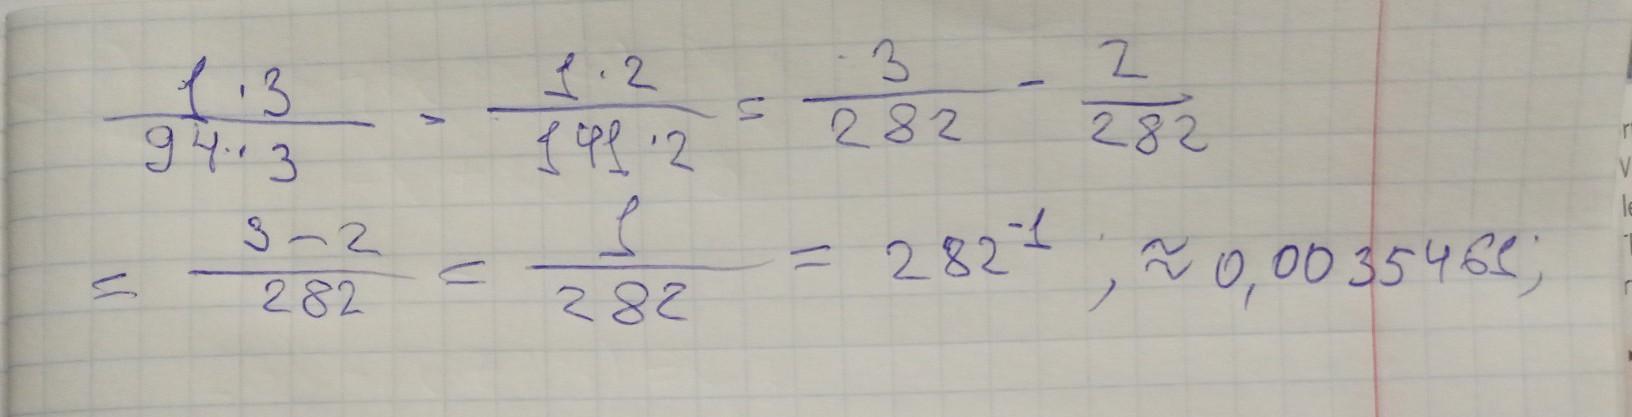 1·3/94·3 - 1·2/141·2 = 3/282 - 2/282
= 3-2/282 = 1/282 = 282^-1, ≈ 0,0035461;